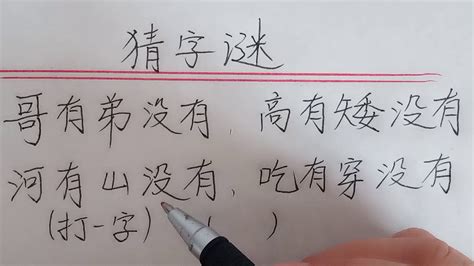 猜字谜
哥有弟没有,高有矮没有
河有山没有,吃有穿没有
(打一字) ( )